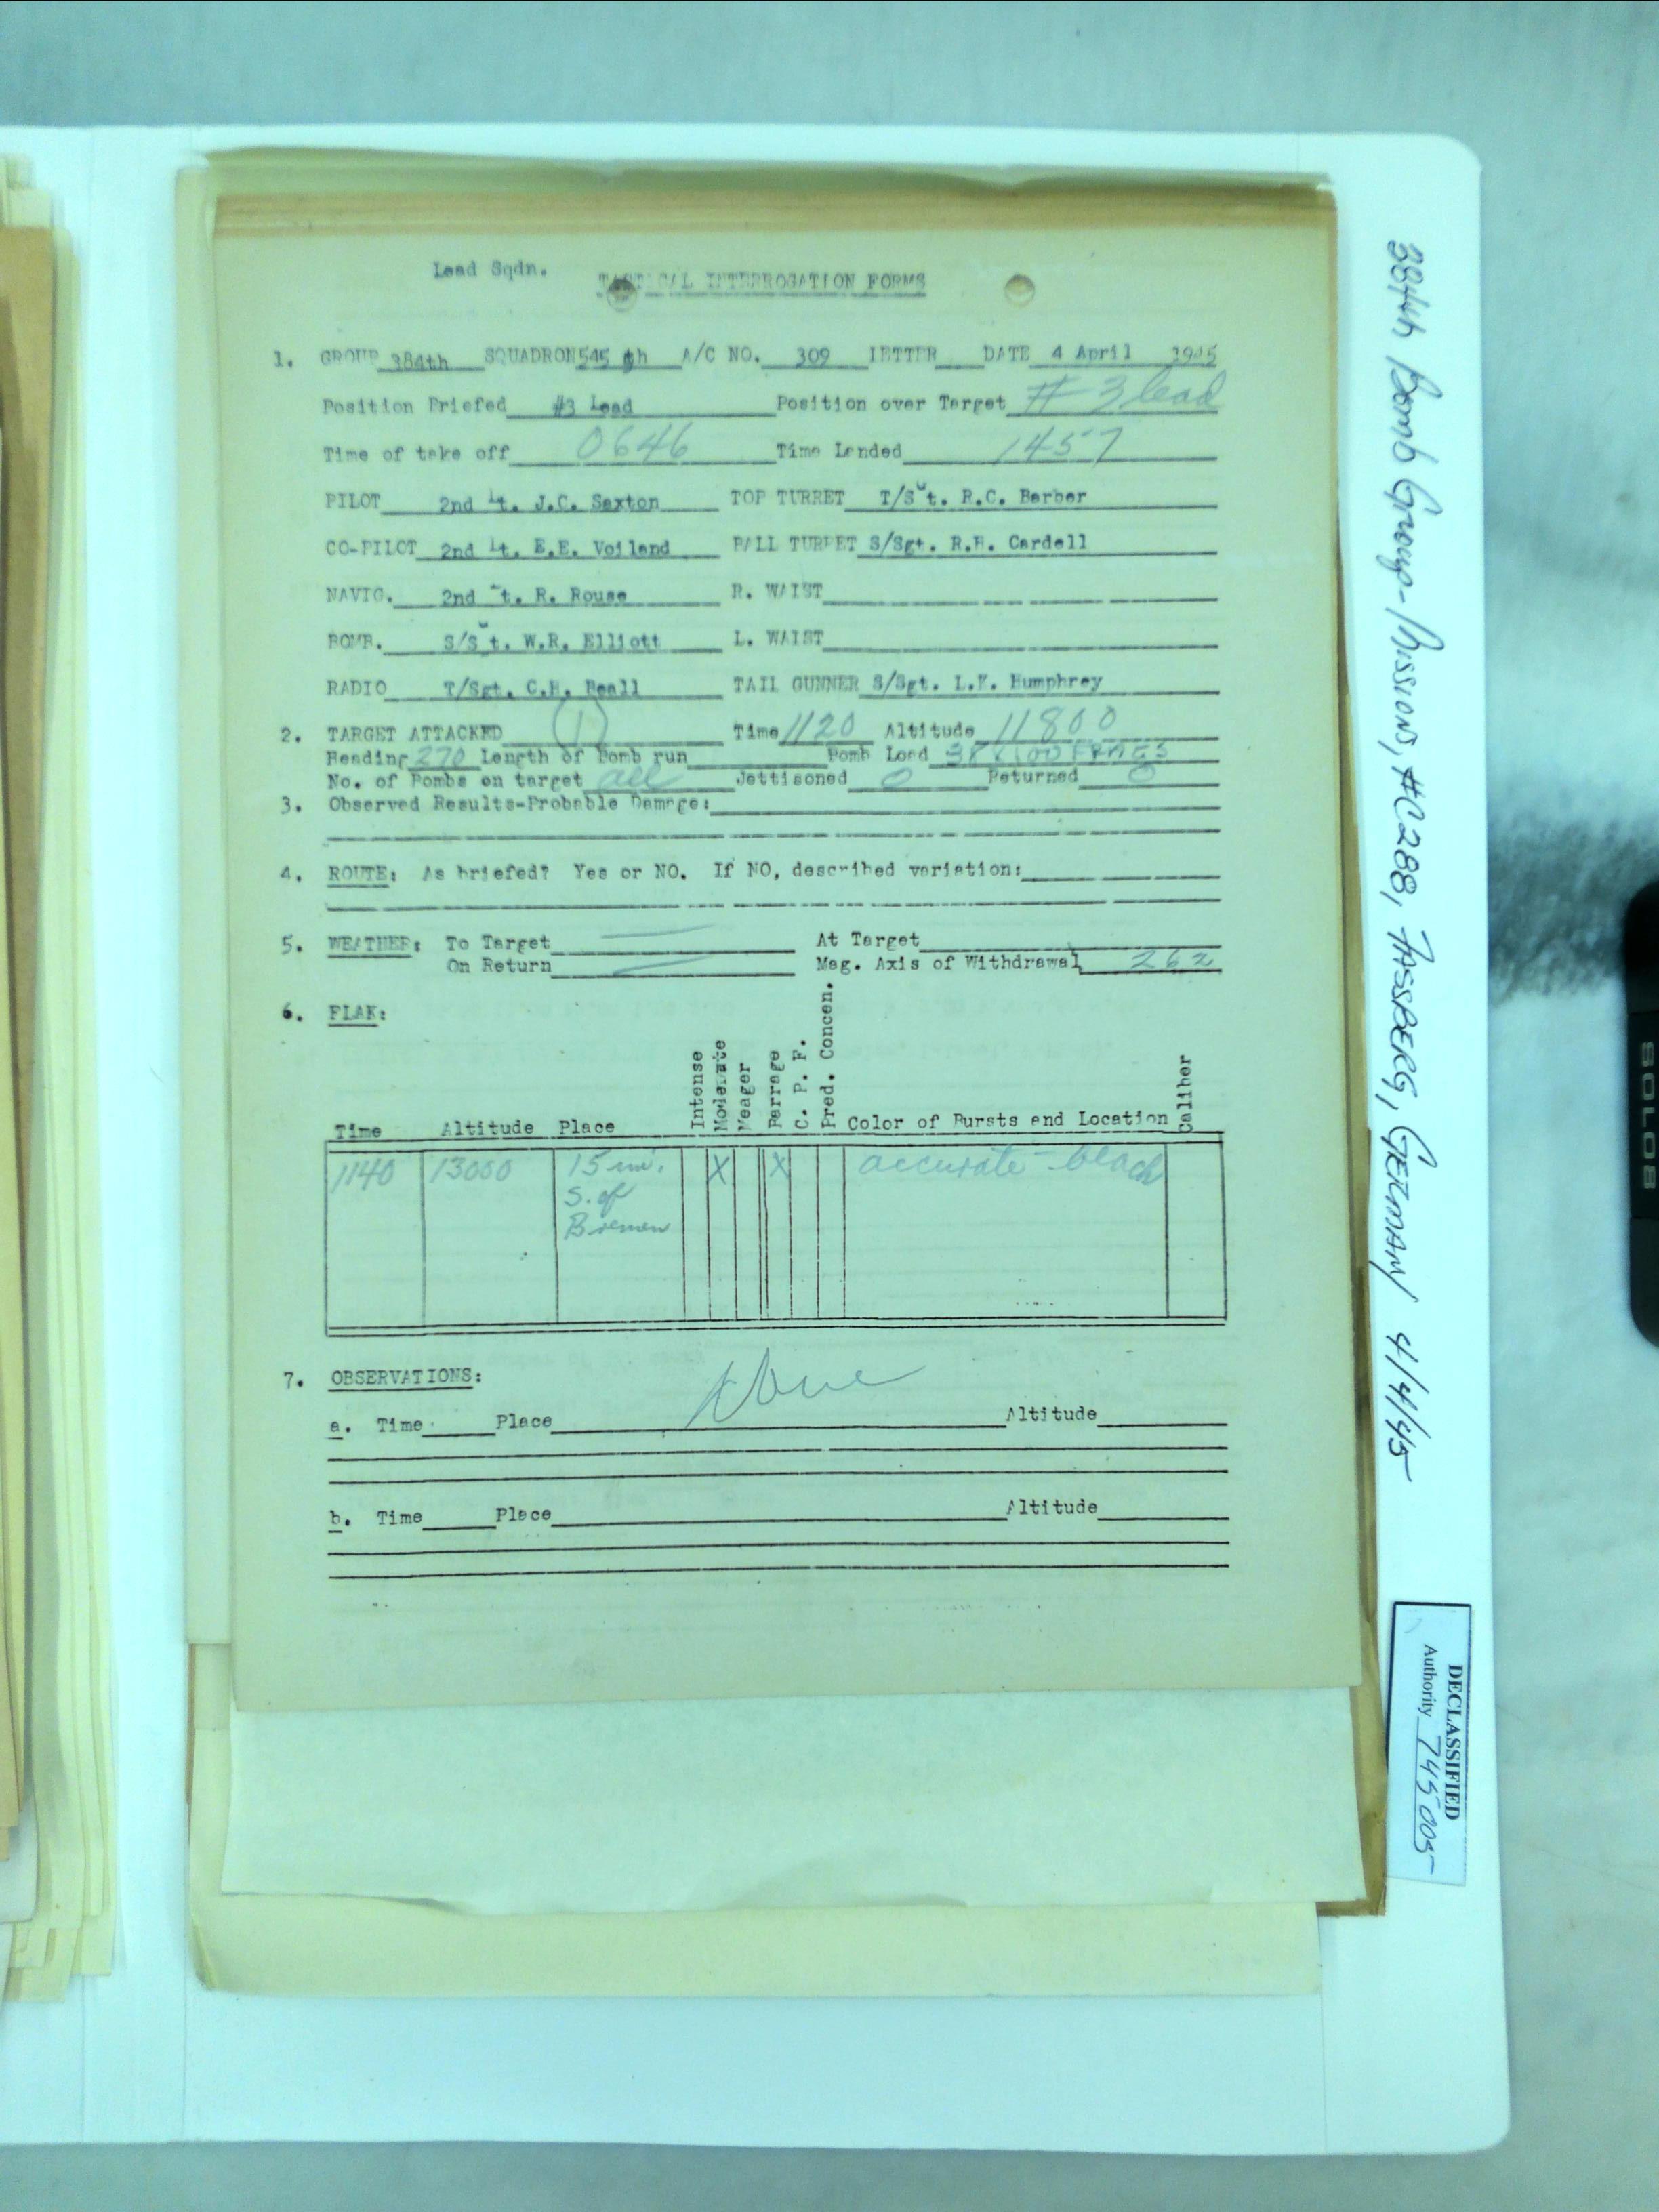 Lead Sqdn.
TACTICAL INTERROGATION FORMS
1. GROUP 384th SQUADRON 545 th A/C NO. 309 LETTER DATE 4 April 1945
Position Briefed #3 Lead Position over Target #3 lead
Time of take off 0646 Time Landed 1457
PILOT 2nd Lt. J.C. Saxton TOP TURRET T/Sgt. R.C. Barber
CO-PILOT 2nd Lt. E.E. Voiland BALL TURRET S/Sgt. R.H. Cardell
NAVIG. 2nd Lt. R. Rouse R. WAIST
BOMB. S/Sgt. W.R. Elliott L. WAIST
RADIO T/Sgt. C.H. Beall TAIL GUNNER S/Sgt. L.F. Humphrey
2. TARGET ATTACKED (1) Time 1120 Altitude 11800
Heading 270 Length of Bomb run Bomb Load 38X100
No. of Bombs on target all Jettisoned 0 Returned 0
3. Observed Results-Probable Damage:
4. ROUTE: As briefed? Yes or NO. If NO, described variation:
5. WEATHER: To Target At Target
On Return Mag. Axis of Withdrawal 262
6. FLAK:
Time Altitude Place Intense Moderate Meager Barrage C. P. F. Pred. Concen. Color of Bursts and Location Caliber
1140 13000 15 mi. X X accurate - black
S. of
Bremen
7. OBSERVATIONS: None
a. Time Place Altitude
b. Time Place Altitude
384th Bomb Group-Missions, #C288, FASSBERG, GERMANY 4/4/45
DECLASSIFIED
Authority 745005
SOLO8